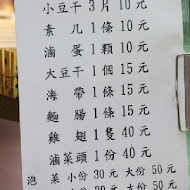 小豆干 3片 10元
素几 1條 10元
滷蛋 1顆 10元
大豆干 1個 15元
海帶 1條 15元
麵腸 1條 15元
雞翅 1隻 40元
滷菜頭 1份 40元
泡菜 小份 30元 大份 50元
小份 30元 大份 50元